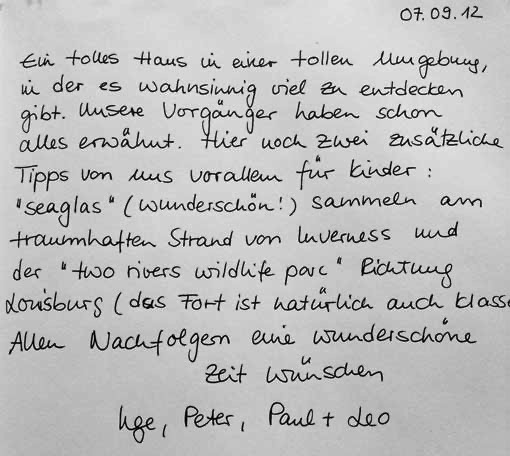 07.09.12
Ein tolles Haus in einer tollen Umgebung,
in der es wahnsinnig viel zu entdecken
gibt. Unsere Vorgänger haben schon
alles erwähnt. Hier noch zwei zusätzliche
Tipps von uns vorallem für Kinder :
"seaglas" (wunderschön!) sammeln am
traumhaften Strand von Inverness und
der "two rivers wildlife parc" Richtung
Louisburg (das Fort ist natürlich auch klasse
Allen Nachfolgern eine wunderschöne
Zeit wünschen
Inge, Peter, Paul + Leo